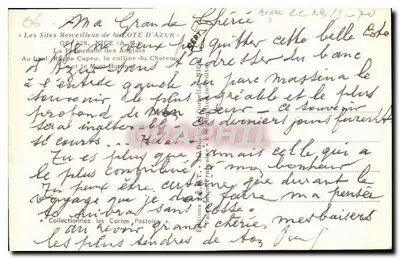 66
Ma Grande Chérie
« Les Sites Merveilleux de la COTE D'AZUR »
NICE (A.-M.)
je ne veux pas quitter cette belle Côte
La Promenade des Anglais
d'Azur sans t'adresser du banc
Au fond Rauba Capeu, la colline du Chateau
et le Mont Boron
à l'entrée gauche du parc Massena le
souvenir le plus agréable et le plus
profond de mon cœur - ce souvenir
sera inaltérable ces derniers jours furent
si courts ... Hélas
Tu es plus que jamais celle qui a
le plus contribué à mon bonheur
Tu peux être certaine que durant le
voyage que je dois faire ma pensée
te suivra sans cesse.
« Collectionnez les Cartes Postales »
Au revoir Grande chérie, mes baisers
les plus tendres de ton